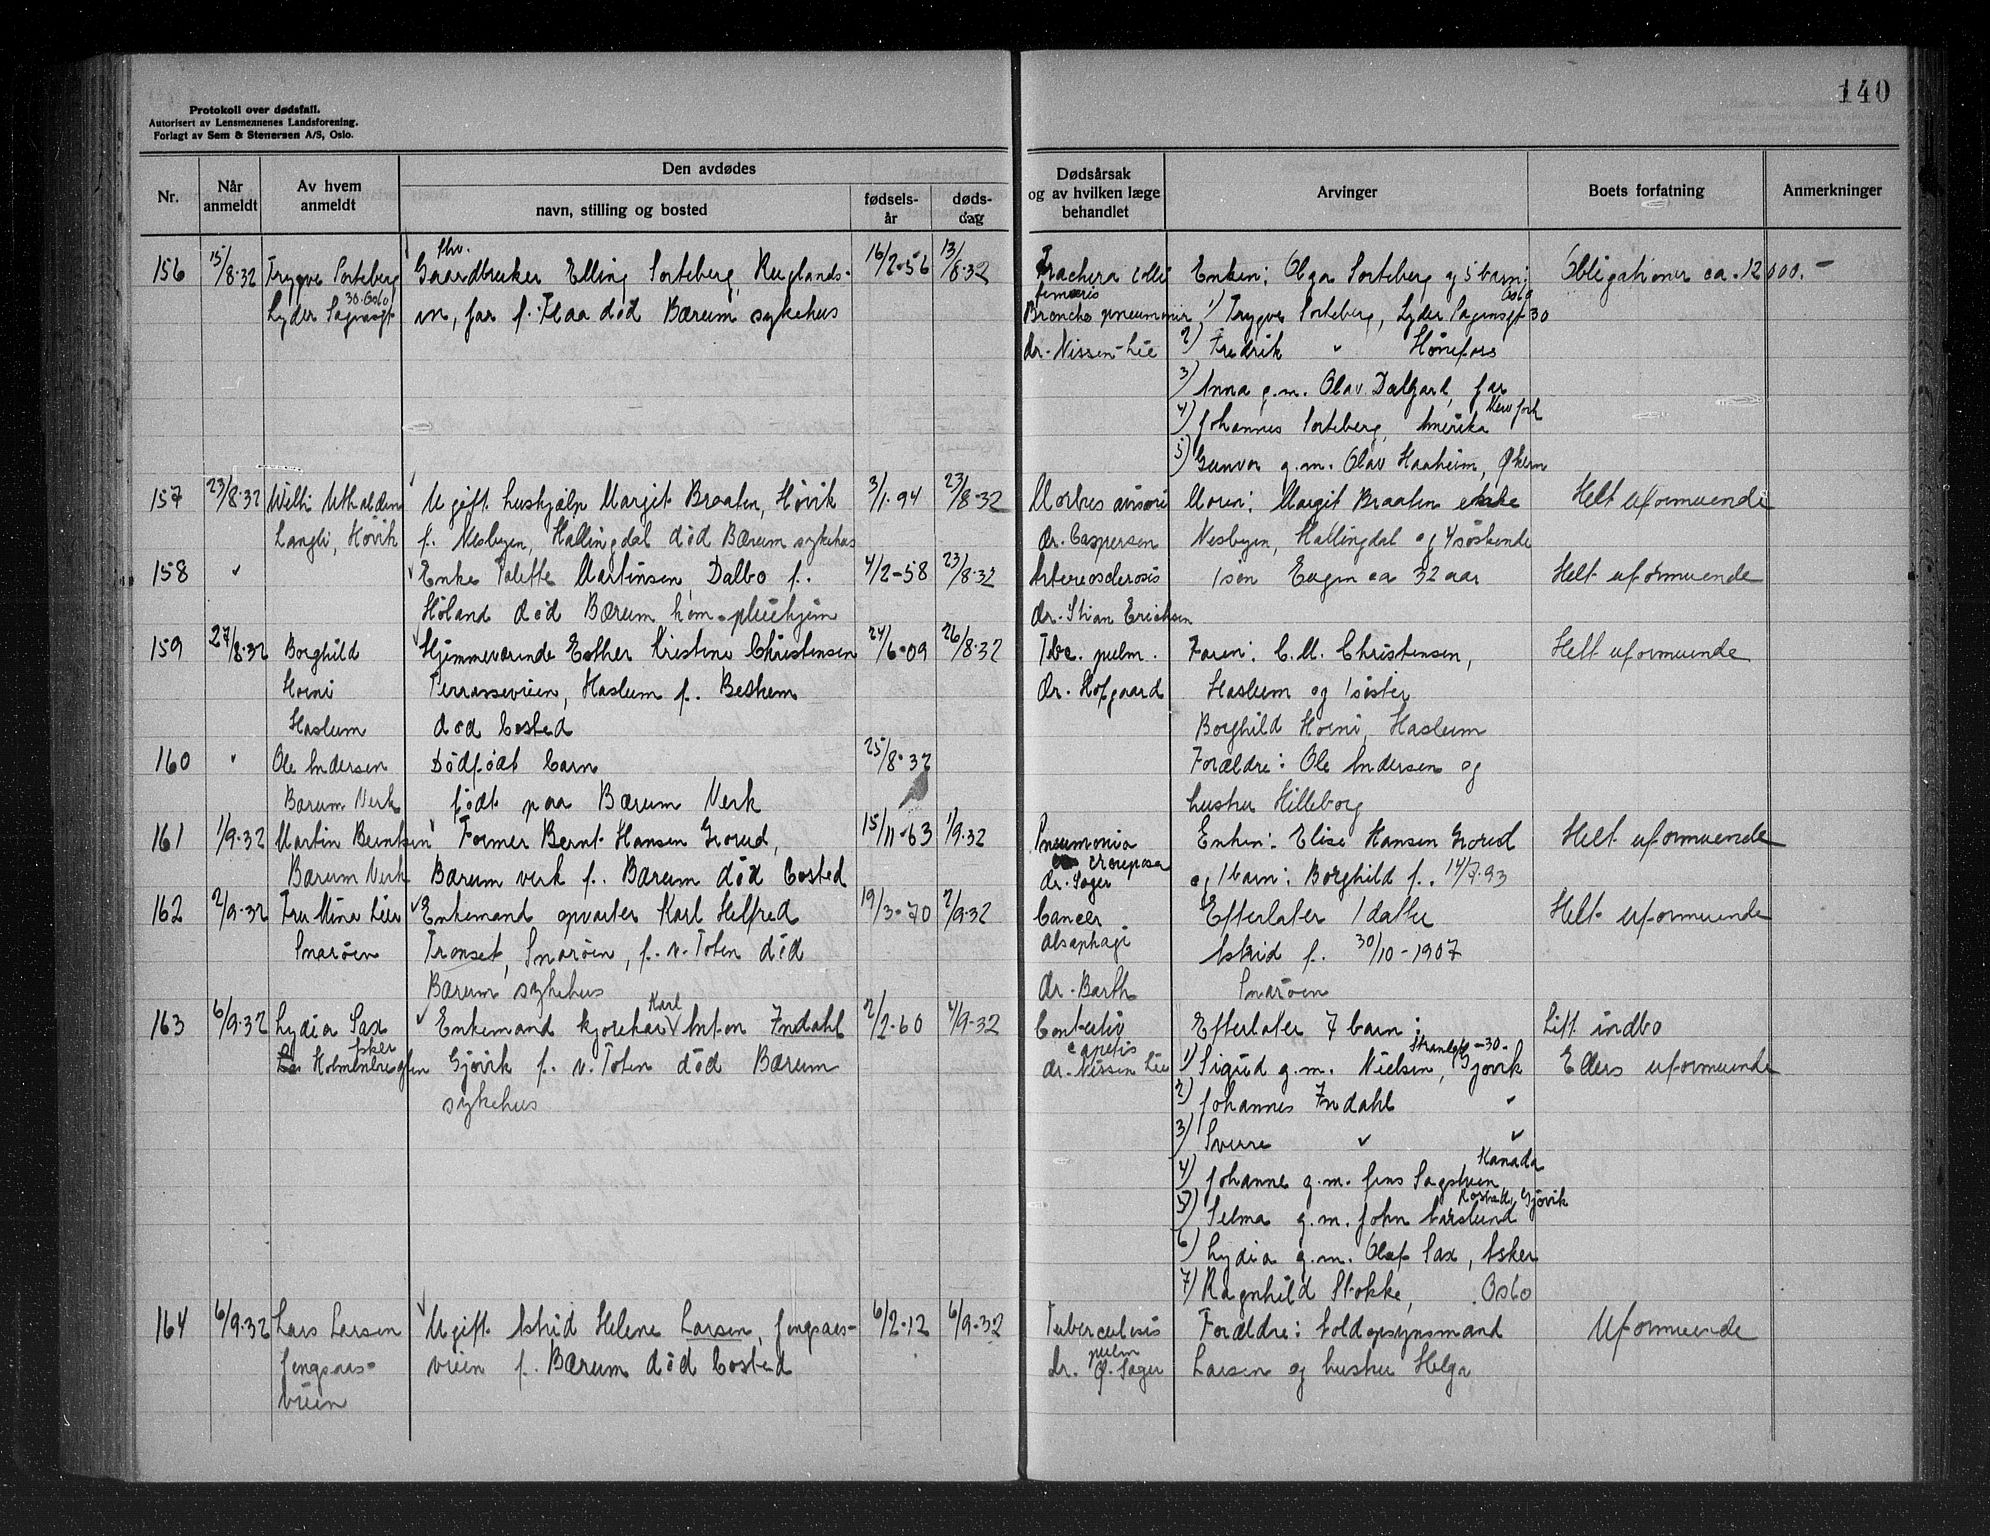 Protokoll over dødsfall.
Autorisert av Lensmennenes Landsforening.
Forlagt av Sem & Stenersen A/S, Oslo.
140
Nr.
Når anmeldt
Av hvem anmeldt
Den avdødes
navn, stilling og bosted
fødsels-år
døds-dag
Dødsårsak og av hvilken læge behandlet
Arvinger
Boets forfatning
Anmerkninger
156 15/8-32 Trygve Sorteberg Gaardbruker Elling Sorteberg, 16/2-56 13/8-32 colli Enken: Olga Sorteberg og 5 barn: Obligationer ca. 12 000.-
30. Oslo
femoris
Oslo
Lyder Sagensgt f. Flaa död Bærum sykehus Broncho pneumonie 1) Trygve Sorteberg, Lyder Sagensgt 30
dr. Nissen-Lie 2) Fredrik " Hönefoss
3) Anna g.m. Olav Dalgard,
New York
4) Johannes Sorteberg, Amerika
5) Gunvor g.m. Olav Haaheim, Økern
157 23/8-32 Ugift hushjælp Margit Braaten, Høvik 3/1-94 23/8-32 Morbus Moren: Margit Braaten enke Helt uformuende
Høvik f. Nesbyen, Hallingdal död Bærum sykehus dr. Caspersen Nesbyen, Hallingdal og 4 söskende
158 " Enke Martinsen, Dalbo f. 4/2-58 23/8-32 Arteriosclerosis 1 sön Eugen ca 32 aar Helt uformuende
Höland död Bærum kom. pleiehjem dr. Stian Erichsen
159 27/8-32 Borghild Hjemmeværende Esther Kristine Christensen 24/6-09 26/8-32 Tbc. pulm. Faren: C. M. Christensen, Helt uformuende
Horni Terrasseveien, Haslum f. død dr. Hofgaard Haslum og 1 söster
Haslum död bosted Borghild Horni, Haslum
160 " Ole Andersen Dödfödt barn 25/8-32 Forældre: Ole Andersen og
Bærum Verk födt paa Bærum Verk hustru Hilleborg
161 1/9-32 Martin Berntsen Former Bernt Hansen Grorud, 15/11-63 1/9-32 Pneumonia Enken: Elise Hansen Grorud Helt uformuende
crouposa
Bærum Verk Bærum verk f. Bærum död bosted dr. Sager og 1 barn: Borghild f.
162 2/9-32 Fru Mina Lier Enkemand opvarter Karl Helfred 19/3-70 2/9-32 Cancer Efterlater 1 datter Helt uformuende
Snaröen Tronset, Snaröen, f. v. Toten död Astrid f. 30/10-1907
Bærum sykehus dr. Barth Snaröen
163 6/9-32 Lydia Sax Enkemand kjörekar Karl Anton Indahl 2/2-60 4/9-32 Efterlater 7 barn: Litt indbo
Asker
capitis
Strandgt -30-
Gjövik f. v. Toten död Bærum dr. Nissen Lie 1) Sigrid g.m. Nielsen, Gjövik Ellers uformuende
sykehus 2) Johannes Indahl "
3) Sverre " "
Kanada
4) Johanne g.m. Jens
Gjövik
5) Selma g.m. John
6) Lydia g.m. Olaf Sax, Asker
7) Ragnhild Stokke, Oslo
164 6/9-32 Lars Larsen Ugift Astrid Helene Larsen, Jongsaas- 6/2-12 6/9-32 Tuberculosis Forældre: toldopsynsmand Uformuende
pulm
Jongsaas- veien f. Bærum död bosted dr. Ø. Sager Larsen og hustru Helga
veien